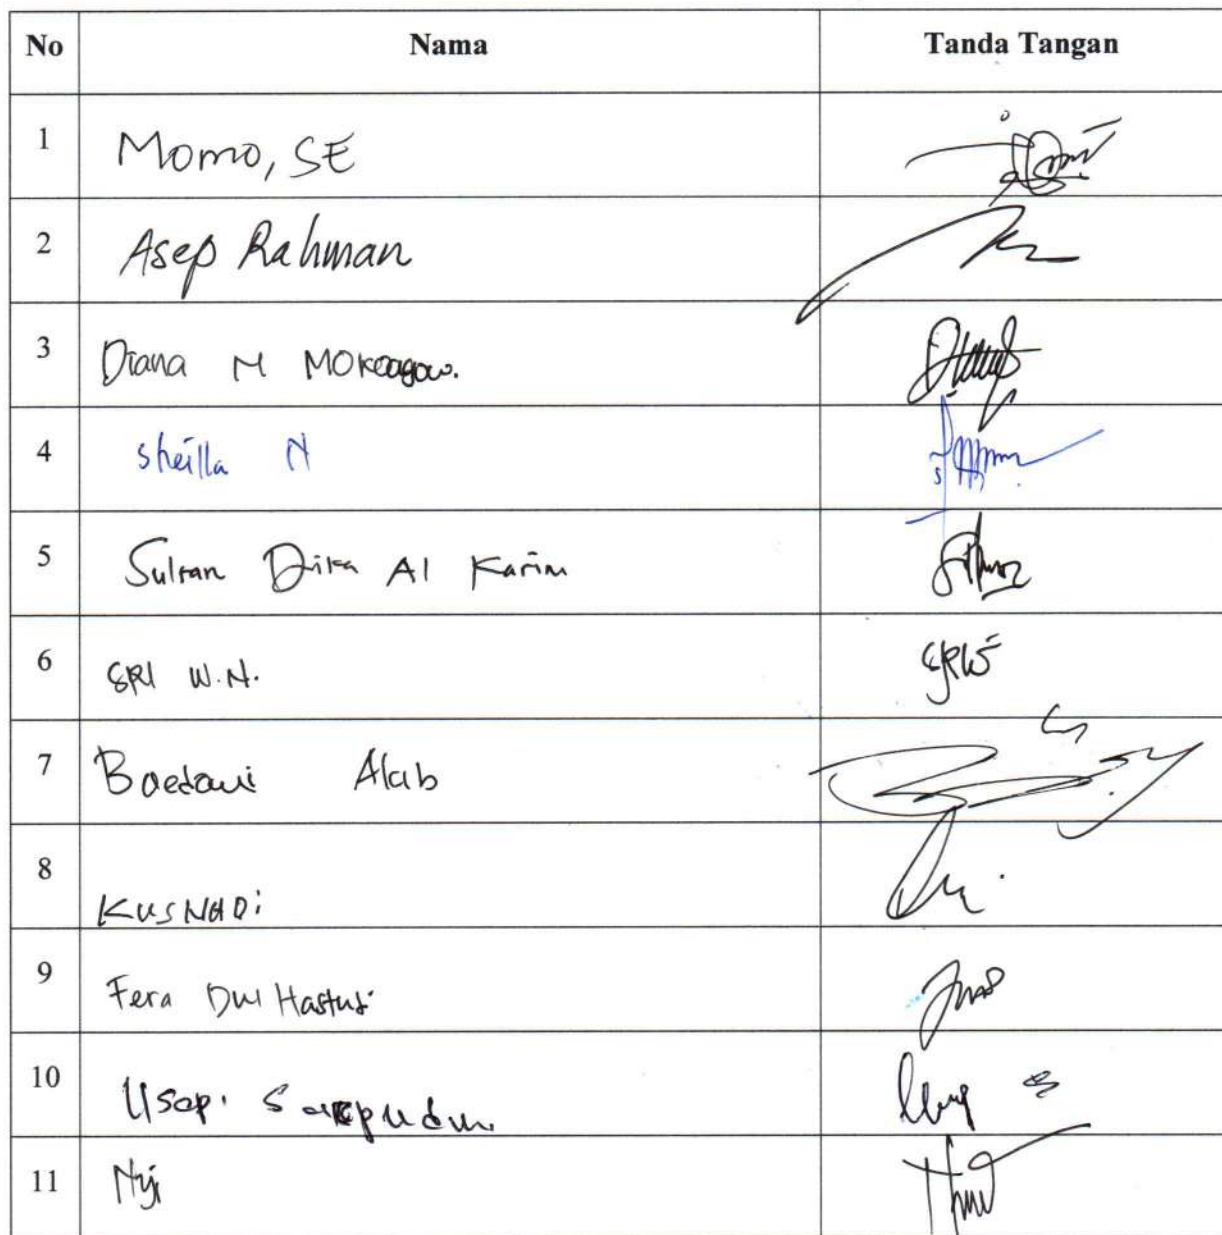 No Nama Tanda Tangan
1 Momo, SE
2 Asep Rahman
3 Diana M Mokoagow.
4 Sheilla N
5 Sultan Dika Al Karim
6 SRI W.N.
7 Boedowi Alab
8 KUSNADi
9 Fera Dwi Hastuti
10 Usep. Saepudin
11 Niji